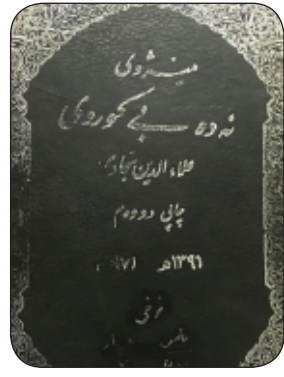 مێـژووی
ئەدەبی کوردی
علاءالدین سجادی
چاپی دووەم
١٣٩١هـ ١٩٧١
نرخی